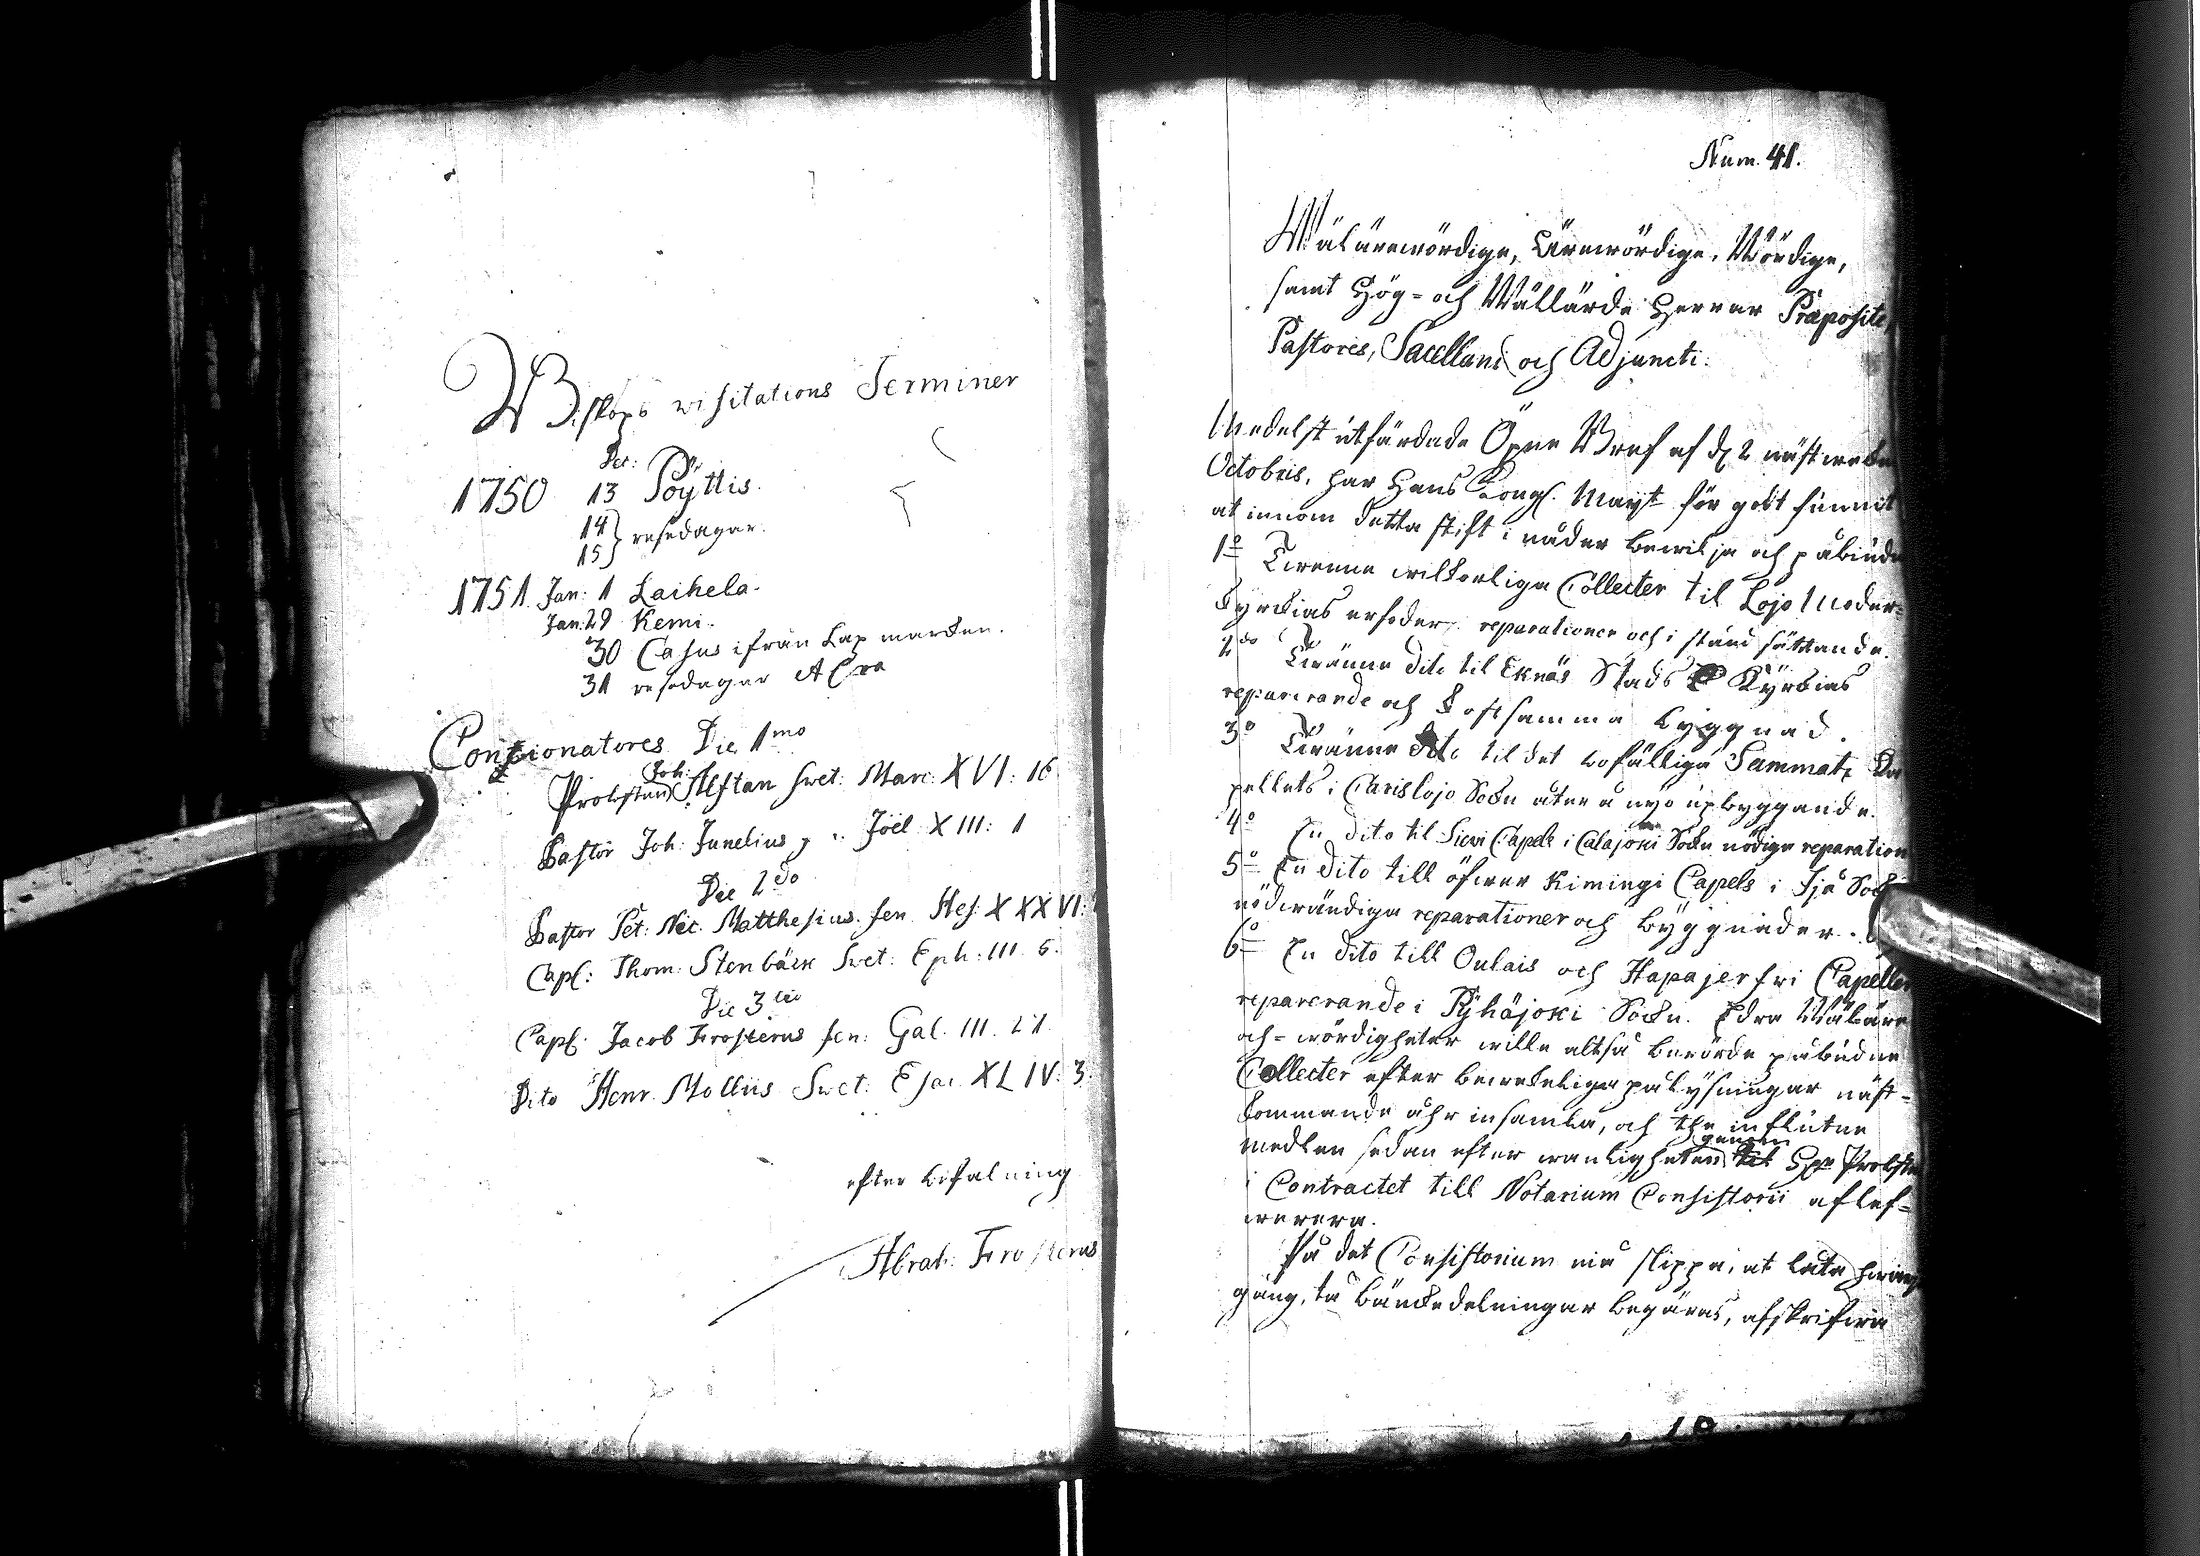 Biskops visitations Terminer
Dec:
1750 13 Pöyttis.
14
15 } resedagar.
1751. Jan: 1 Laihela.
Jan: 29 Kemi.
30 Casus ifrån Lap marken.
31 resedagar
Contionatores Die 1mo
Joh:
Probsten Alftan Svet: Marc: XVI: 16
Pastor Joh: Junelius Joel XIII: 1
Die 2do
Pastor Pet: Nic. Matthesius fen Hes: XXXVI:
Capl: Thom: Stenbäck Svet: Eph: III. 5.
Die 3tio
Capl: Jacob Frosterus fen: Gal. III. 21
Dito Henr. Mollius Svet: Esai. XLIV: 3.
efter befalning
Abrah: Frosterus
Num. 41.
Wälärewördige, Ärewördige, Wördige,
samt Hög- och Wällärde Herrar Præposite,
Pastores, Sacellani och Adjuncti.
Medelst utfärdade Öpne Bref af d. 2 nästwekne
Octobris, har Hans Kongl. Mayt för godt funnit
at innom detta stift i nåder bewilja och påbiuda
1o Twenne wilkorliga Collecter til Lojo Moder-
kyrkias erfoder. reparationer och i stånd sättande.
2do Twänne dito til Eknäs Stads Kyrkias
reparerande och kostsamma byggnad.
3o Twänne dito til det bofälliga Sammati Ca
pellets i Carislojo Sokn åter å nyo upbyggande.
4o En dito til Sievi Capels i Calajoki Sokn nödiga reparation
5o En dito till öfwer Kimingi Capels i Ijå Sokn
nödwändiga reparationer och byggnader.
6o En dito till Oulais och Hapajerfvi Capellers
reparerande i Pyhäjoki Sokn. Edra Wäläre
och-wördigheter wille altså berörde påbudne
Collecter efter bewekeliga pålysningar näst-
kommande åhr insamla, och the influtne
medlen sedan efter wanligheten genom Hr Probsten
i Contractet till Notarium Consistorii aflef-
werera.
På det Consistorium må slippa, at låta hwar
gång, tå bänkedelningar begäras, afskrifwa